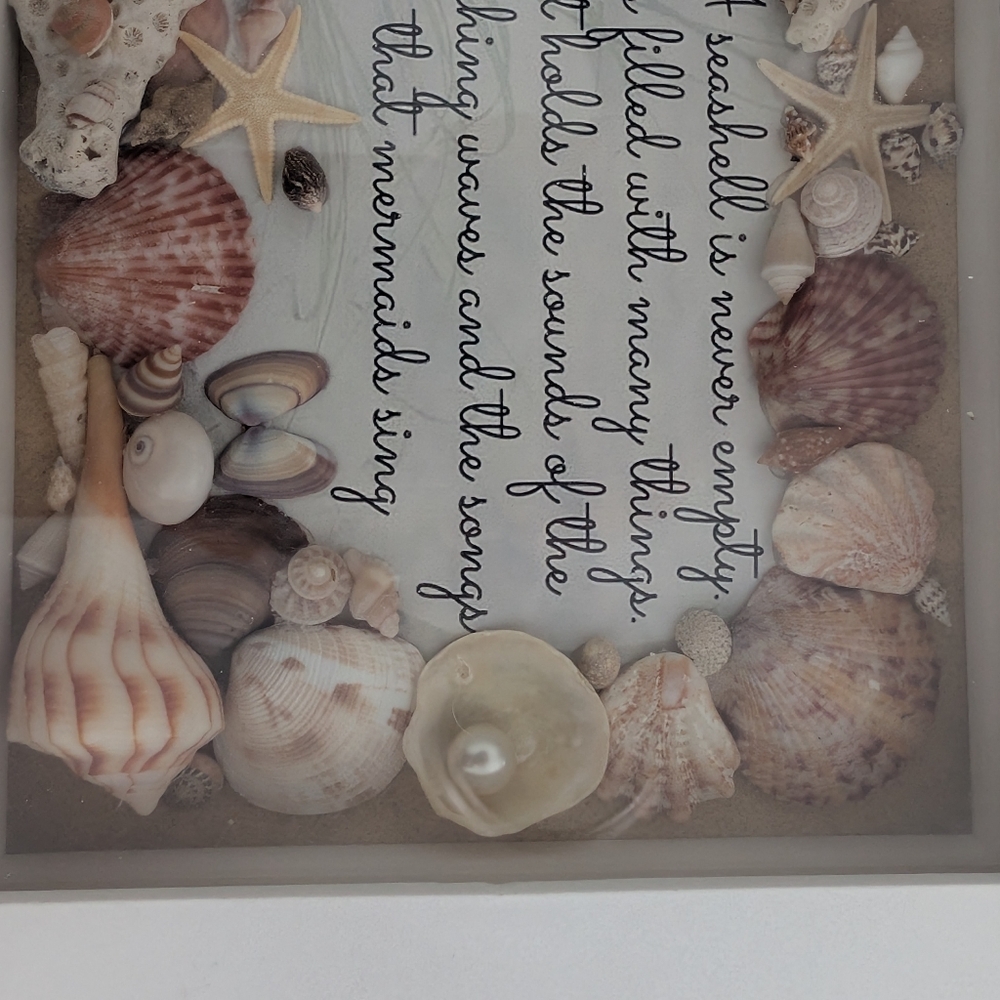 A seashell is never empty.
filled with many things.
holds the sounds of the
waves and the songs
that mermaids sing